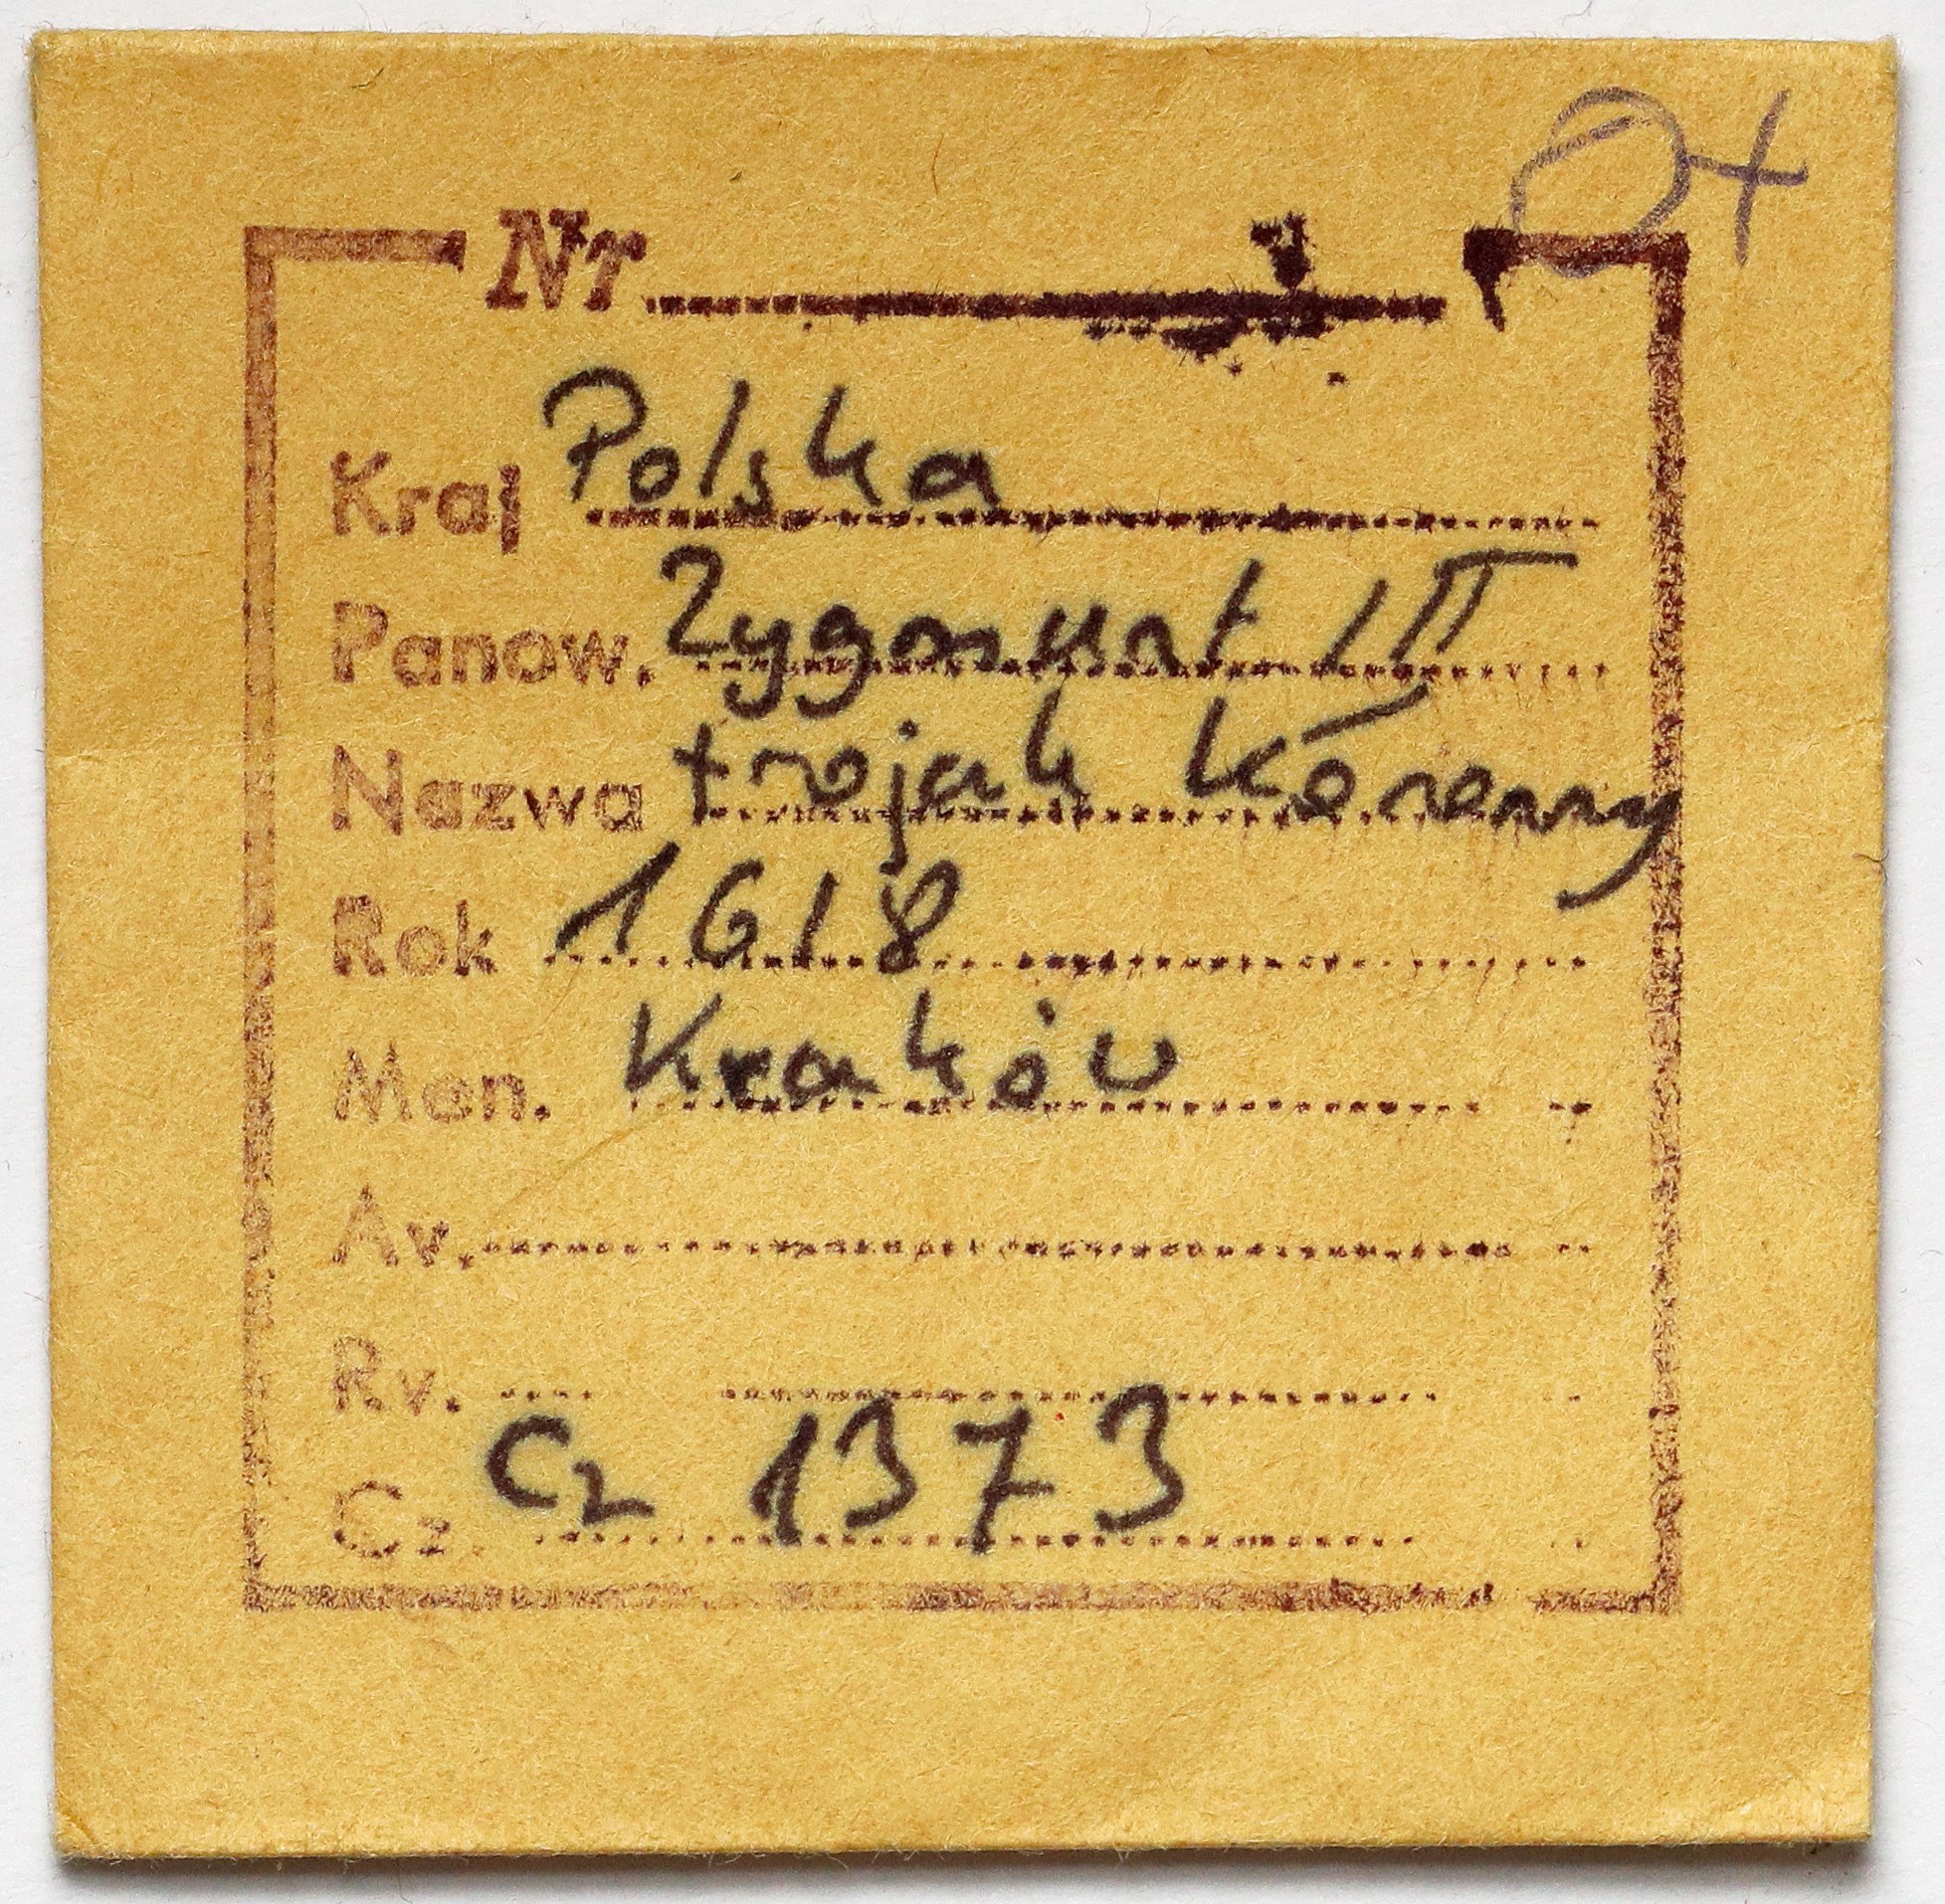 O+
Nr
Kraj Polska
Panow. Zygmunt III
Nazwa trojak kórenny
Rok 1618
Men. Kraków
Av.
Rv.
Cz. Cz 1373